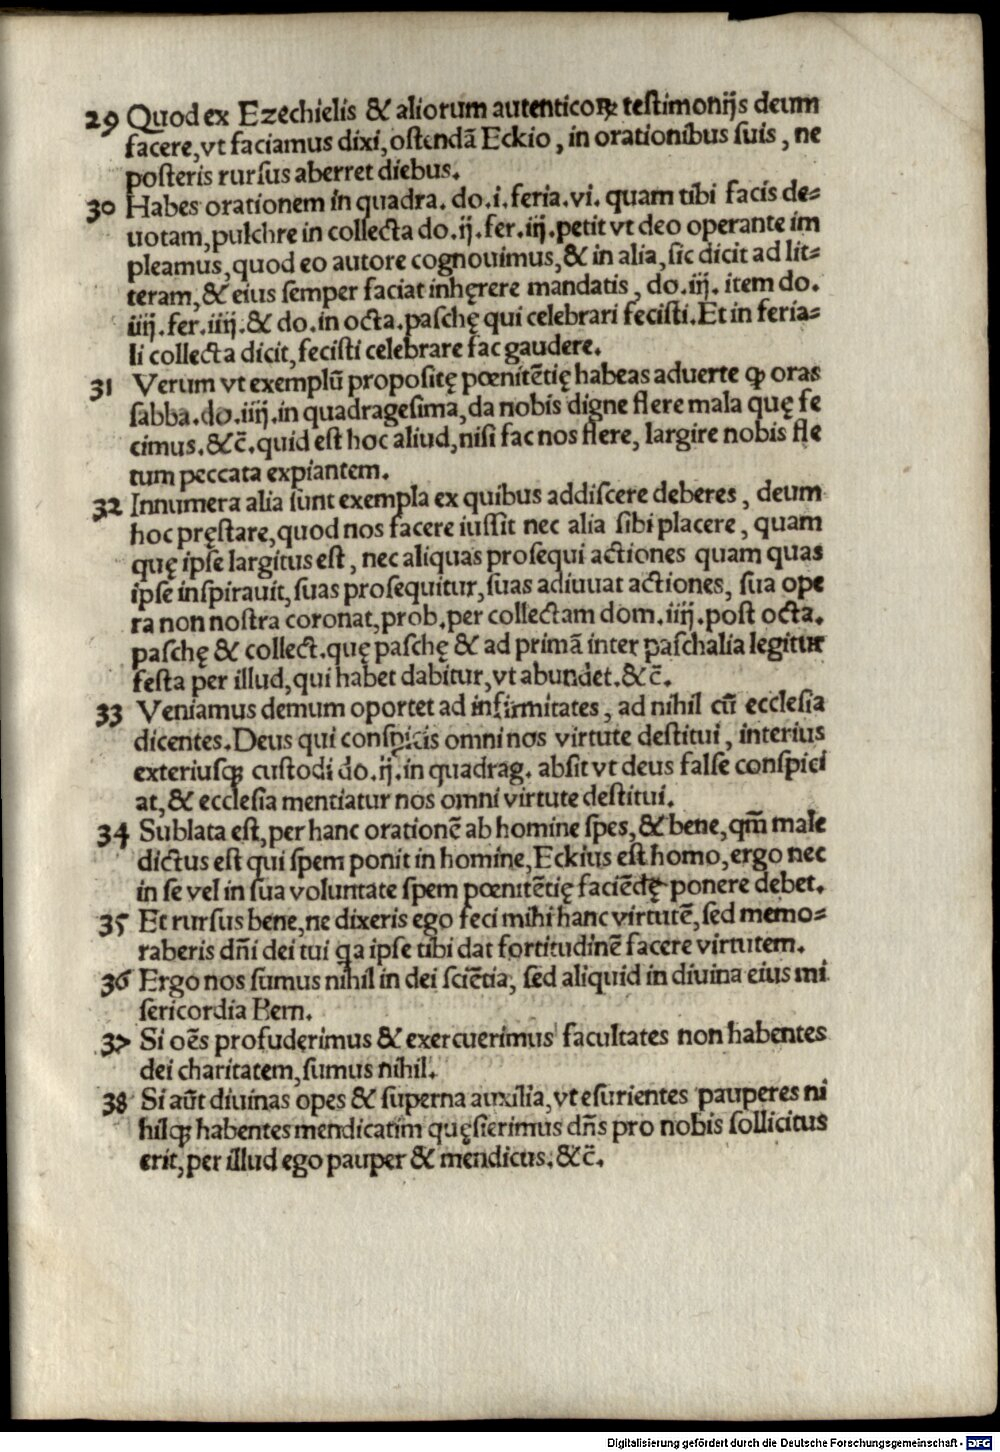 29 Quod ex Ezechielis & aliorum autenticoꝝ testimonijs deum
facere, vt faciamus dixi, ostendā Eckio, in orationibus suis, ne
posteris rursus aberret diebus.
30 Habes orationem in quadra. do. i. feria. vi. quam tibi facis de=
uotam, pulchre in collecta do. ij. fer. iij. petit vt deo operante im
pleamus, quod eo autore cognouimus, & in alia, sic dicit ad lit=
teram, & eius semper faciat inhęrere mandatis, do. iij. item do.
iiij. fer. iiij. & do. in octa. paschę qui celebrari fecisti. Et in feria=
li collecta dicit, fecisti celebrare fac gaudere.
31 Verum vt exemplū propositę pœnitētię habeas aduerte ꝙ oras
sabba. do. iiij. in quadragesima, da nobis digne flere mala quę fe
cimus. &c̄. quid est hoc aliud, nisi fac nos flere, largire nobis fle
tum peccata expiantem.
32 Innumera alia sunt exempla ex quibus addiscere deberes, deum
hoc pręstare, quod nos facere iussit nec alia sibi placere, quam
quę ipse largitus est, nec aliquas prosequi actiones quam quas
ipse inspirauit, suas prosequitur, suas adiuuat actiones, sua ope
ra non nostra coronat, prob. per collectam dom. iiij. post octa.
paschę & collect. quę paschę & ad primā inter paschalia legitur
festa per illud, qui habet dabitur, vt abundet. &c̄.
33 Veniamus demum oportet ad infirmitates, ad nihil cū ecclesia
dicentes. Deus qui conspicis omni nos virtute destitui, interius
exteriusq; custodi do. ij. in quadrag. absit vt deus false conspici
at, & ecclesia mentiatur nos omni virtute destitui.
34 Sublata est, per hanc orationē ab homine spes, & bene, qm̄ male
dictus est qui spem ponit in homine, Eckius est homo, ergo nec
in se vel in sua voluntate spem pœnitētię faciēdę ponere debet.
35 Et rursus bene, ne dixeris ego feci mihi hanc virtutē, sed memo=
raberis dn̄i dei tui qa ipse tibi dat fortitudinē facere virtutem.
36 Ergo nos sumus nihil in dei sciētia, sed aliquid in diuina eius mi
sericordia Bern.
37 Si oēs profuderimus & exercuerimus facultates non habentes
dei charitatem, sumus nihil.
38 Si aūt diuinas opes & superna auxilia, vt esurientes pauperes ni
hilq; habentes mendicatim quęsierimus dn̄s pro nobis sollicitus
erit, per illud ego pauper & mendicus. &c̄.
Digitalisierung gefördert durch die Deutsche Forschungsgemeinschaft - DFG